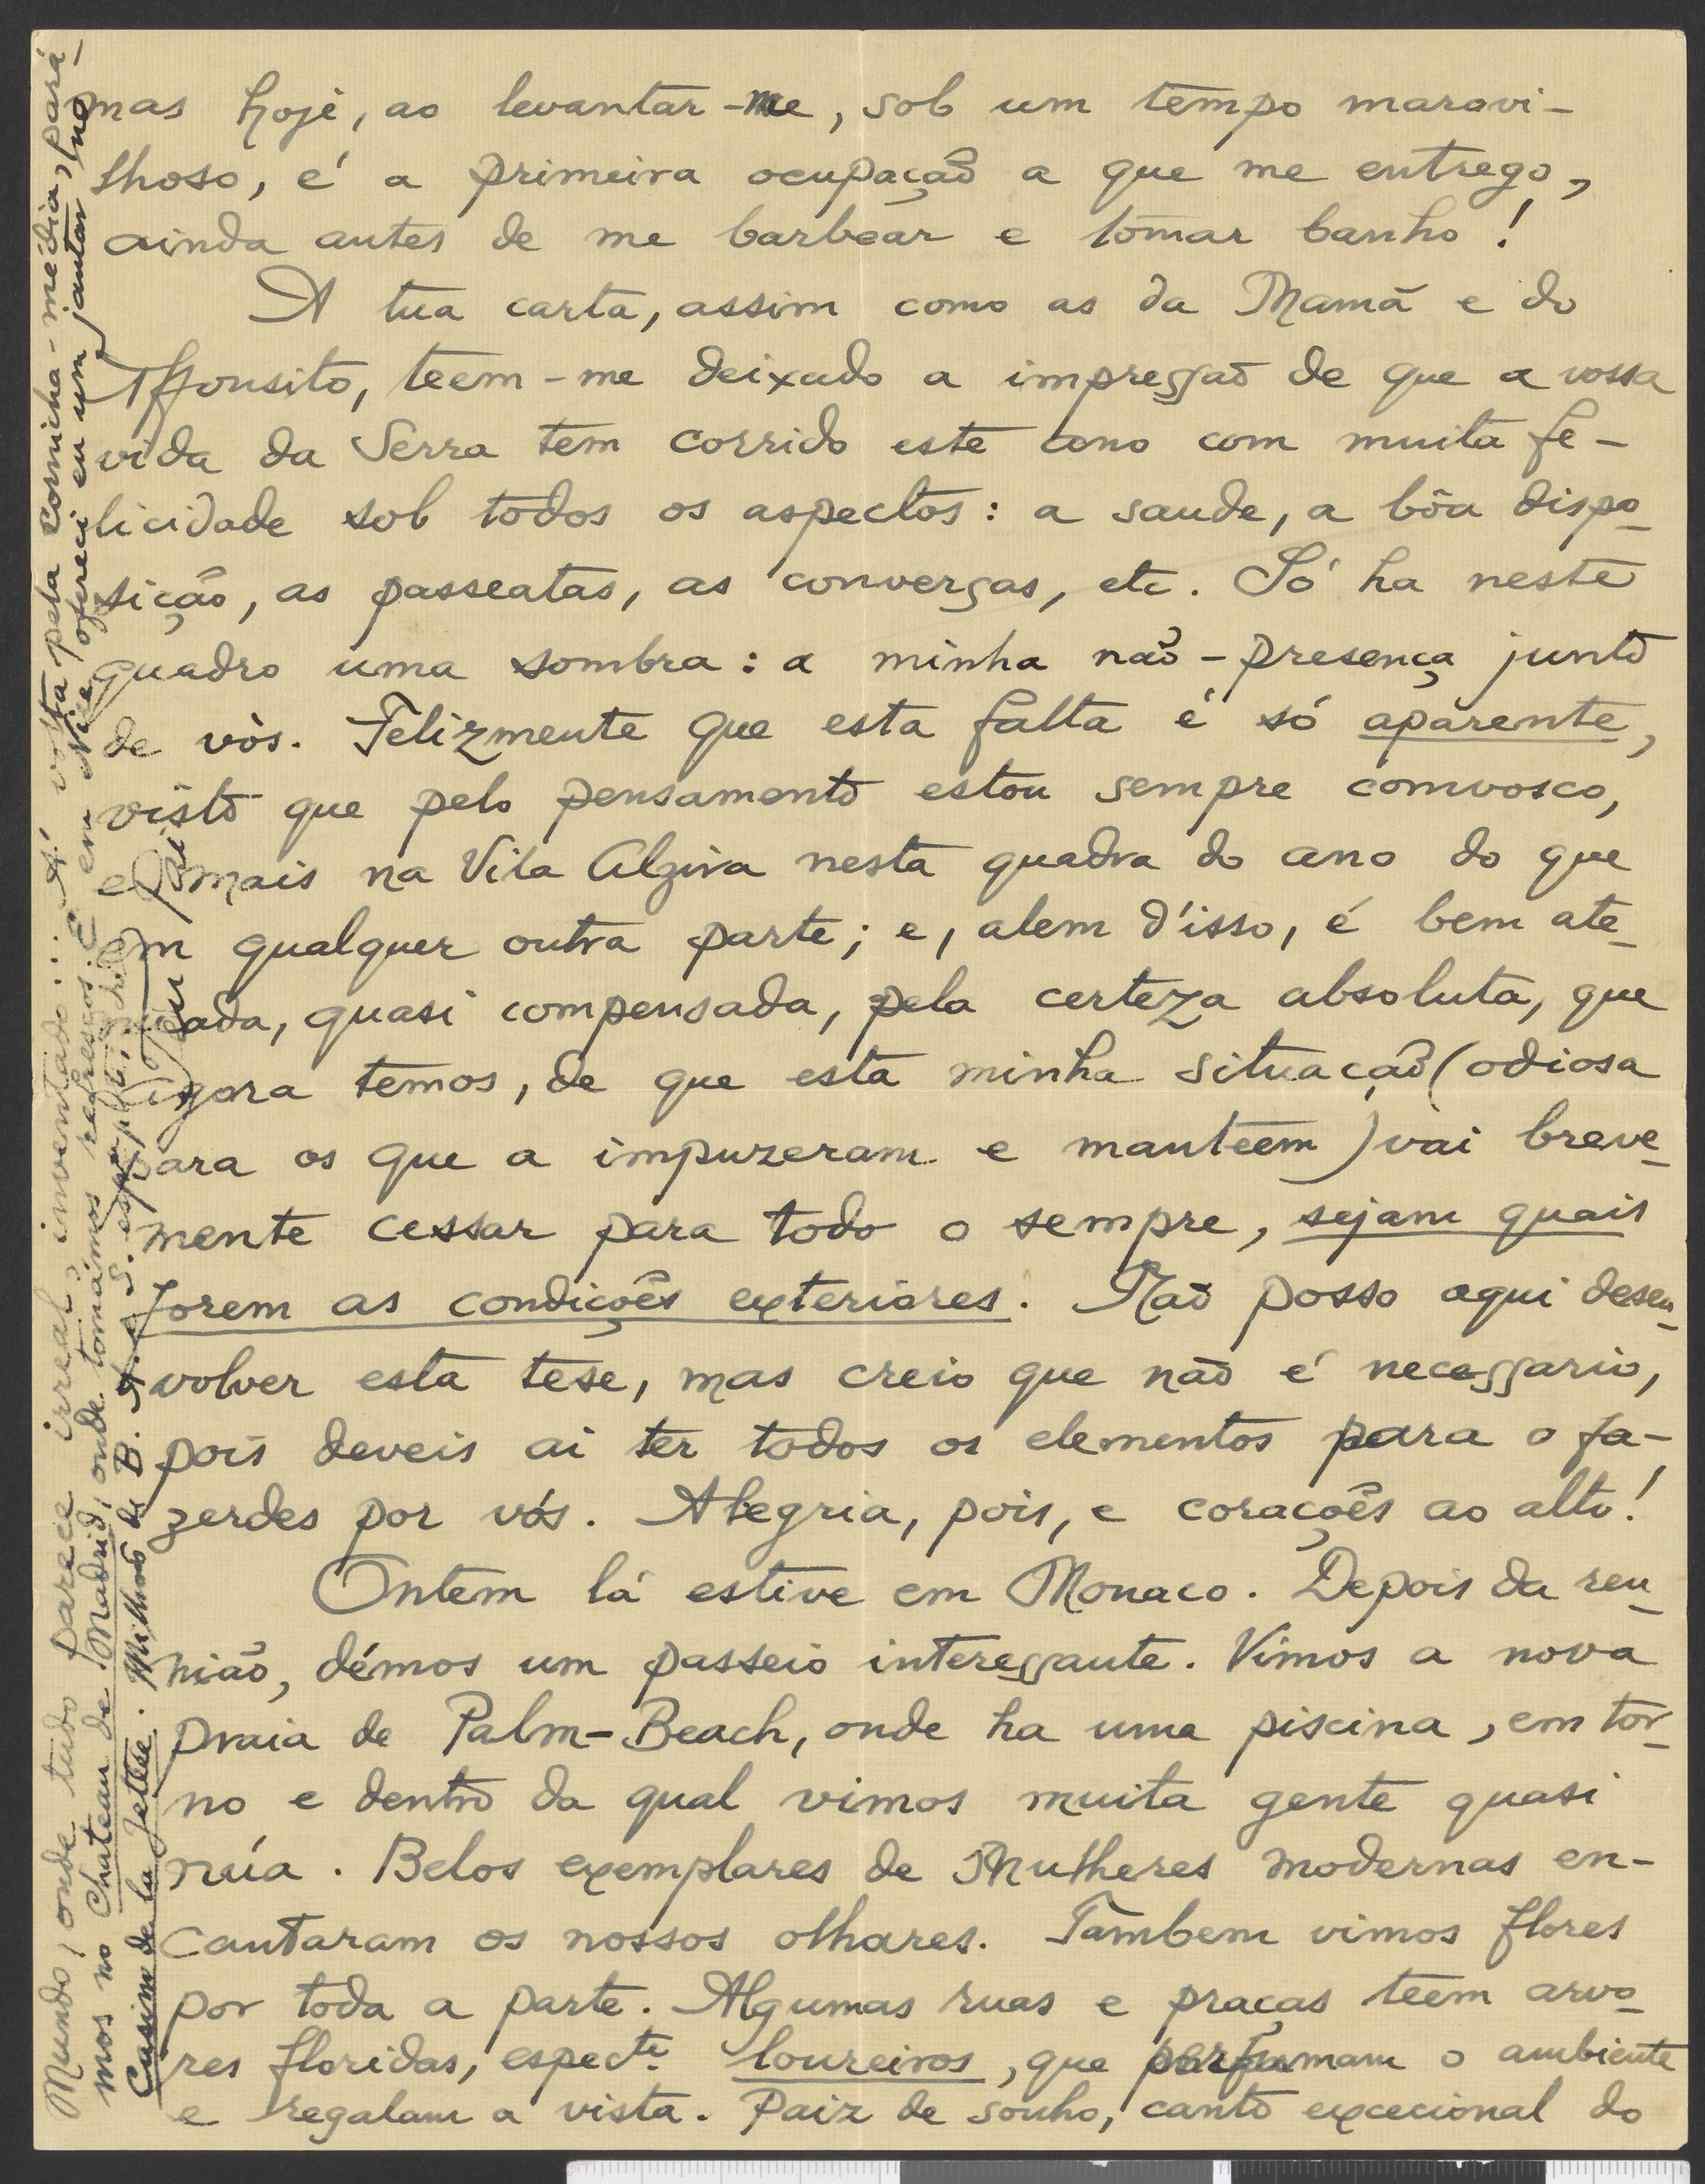 mas hoje, ao levantar-me, sob um tempo maravi-
lhoso, é a primeira ocupação a que me entrego,
ainda antes de me barbear e tomar banho!
A tua carta, assim como as da Mamã e do
Affonsito, teem-me deixado a impressão de que a vossa
vida da Serra tem corrido este ano com muita fe-
licidade sob todos os aspectos: a saude, a bôa dispo-
sição, as passeatas, as conversas, etc. Só ha neste
quadro uma sombra: a minha não-presença junto
de vós. Felizmente que esta falta é só aparente,
visto que pelo pensamento estou sempre comvosco,
e mais na Vila Alzira nesta quadra do ano do que
em qualquer outra parte; e, alem d'isso, é bem ate-
nuada, quasi compensada, pela certeza absoluta, que
agora temos, de que esta minha situação (odiosa
para os que a impuzeram e manteem) vai breve-
mente cessar para todo o sempre, sejam quais
forem as condições exteriores. Não posso aqui desen-
volver esta tese, mas creio que não é necessario,
pois deveis ai ter todos os elementos para o fa-
zerdes por vós. Alegria, pois, e corações ao alto!
Ontem lá estive em Monaco. Depois da reu-
nião, démos um passeio interessante. Vimos a nova
praia de Palm-Beach, onde ha uma piscina, em tor-
no e dentro da qual vimos muita gente quasi
núa. Belos exemplares de Mulheres modernas en-
cantaram os nossos olhares. Tambem vimos flores
por toda a parte. Algumas ruas e praças teem arvo-
res floridas, especte. loureiros, que perfumam o ambiente
e regalam a vista. Paiz de sonho, canto excecional do
Mundo, onde tudo parece irreal, inventado... Á volta pela cornicha-média, pará-
mos no Chateau de Madrid, onde tomámos refrescos. E em Nice ofereci eu um jantar, no
Casino de la Jettée. Milhões de B. A. e S.
Teu Pai